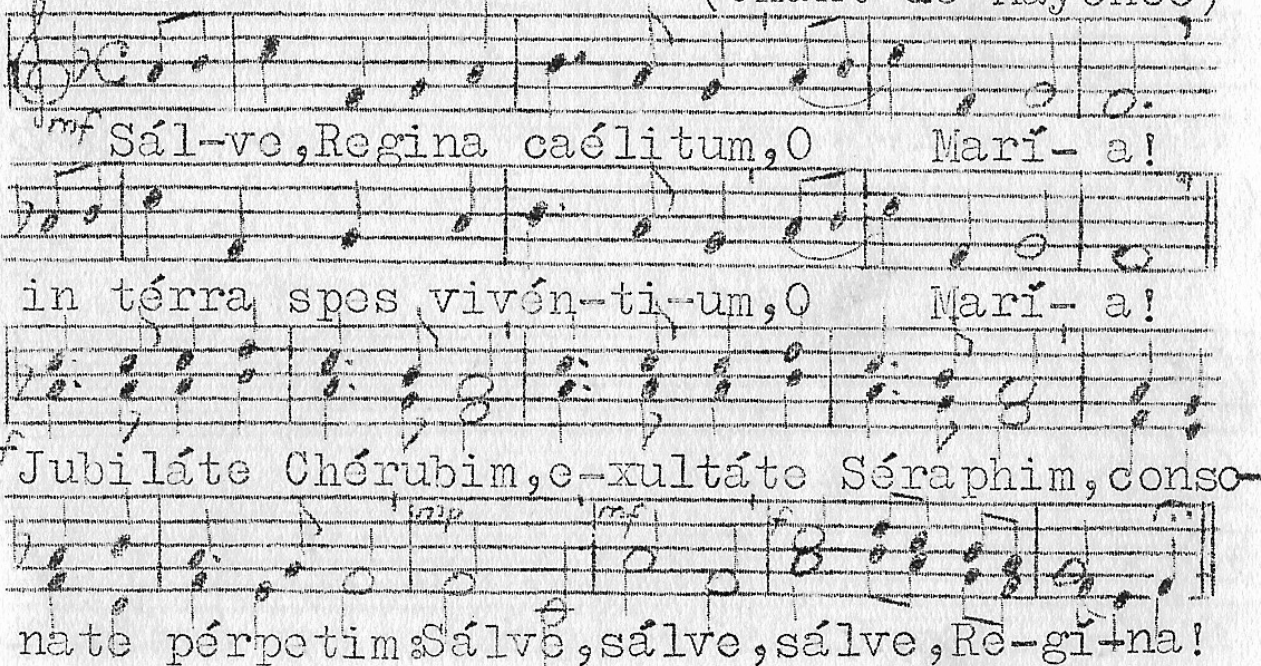 mf Sál-ve,Regina caélitum,O Marí- a!
in térra spes vivén-ti-um,O Marí- a!
f Jubiláte Chérubim,e-xultáte Séraphim,conso-
mp mf f
nate pérpetim:Sálve,sálve,sálve,Re-gí-na!